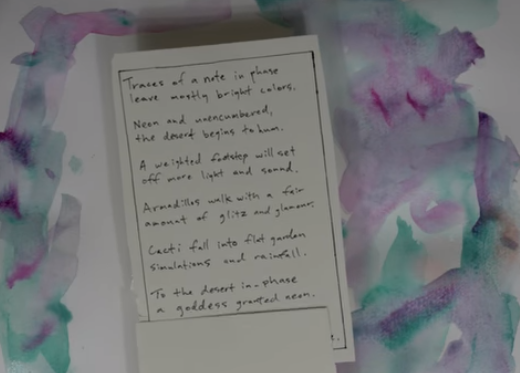 Traces of a note in phase
leave mostly bright colors.
Neon and unencumbered,
the desert begins to hum.
A weighted footstep will set
off more light and sound.
Armadillos walk with a fair
amount of glitz and glamour.
Cacti fall into flat garden
simulations and rainfall.
To the desert in-phase
a goddess granted neon.